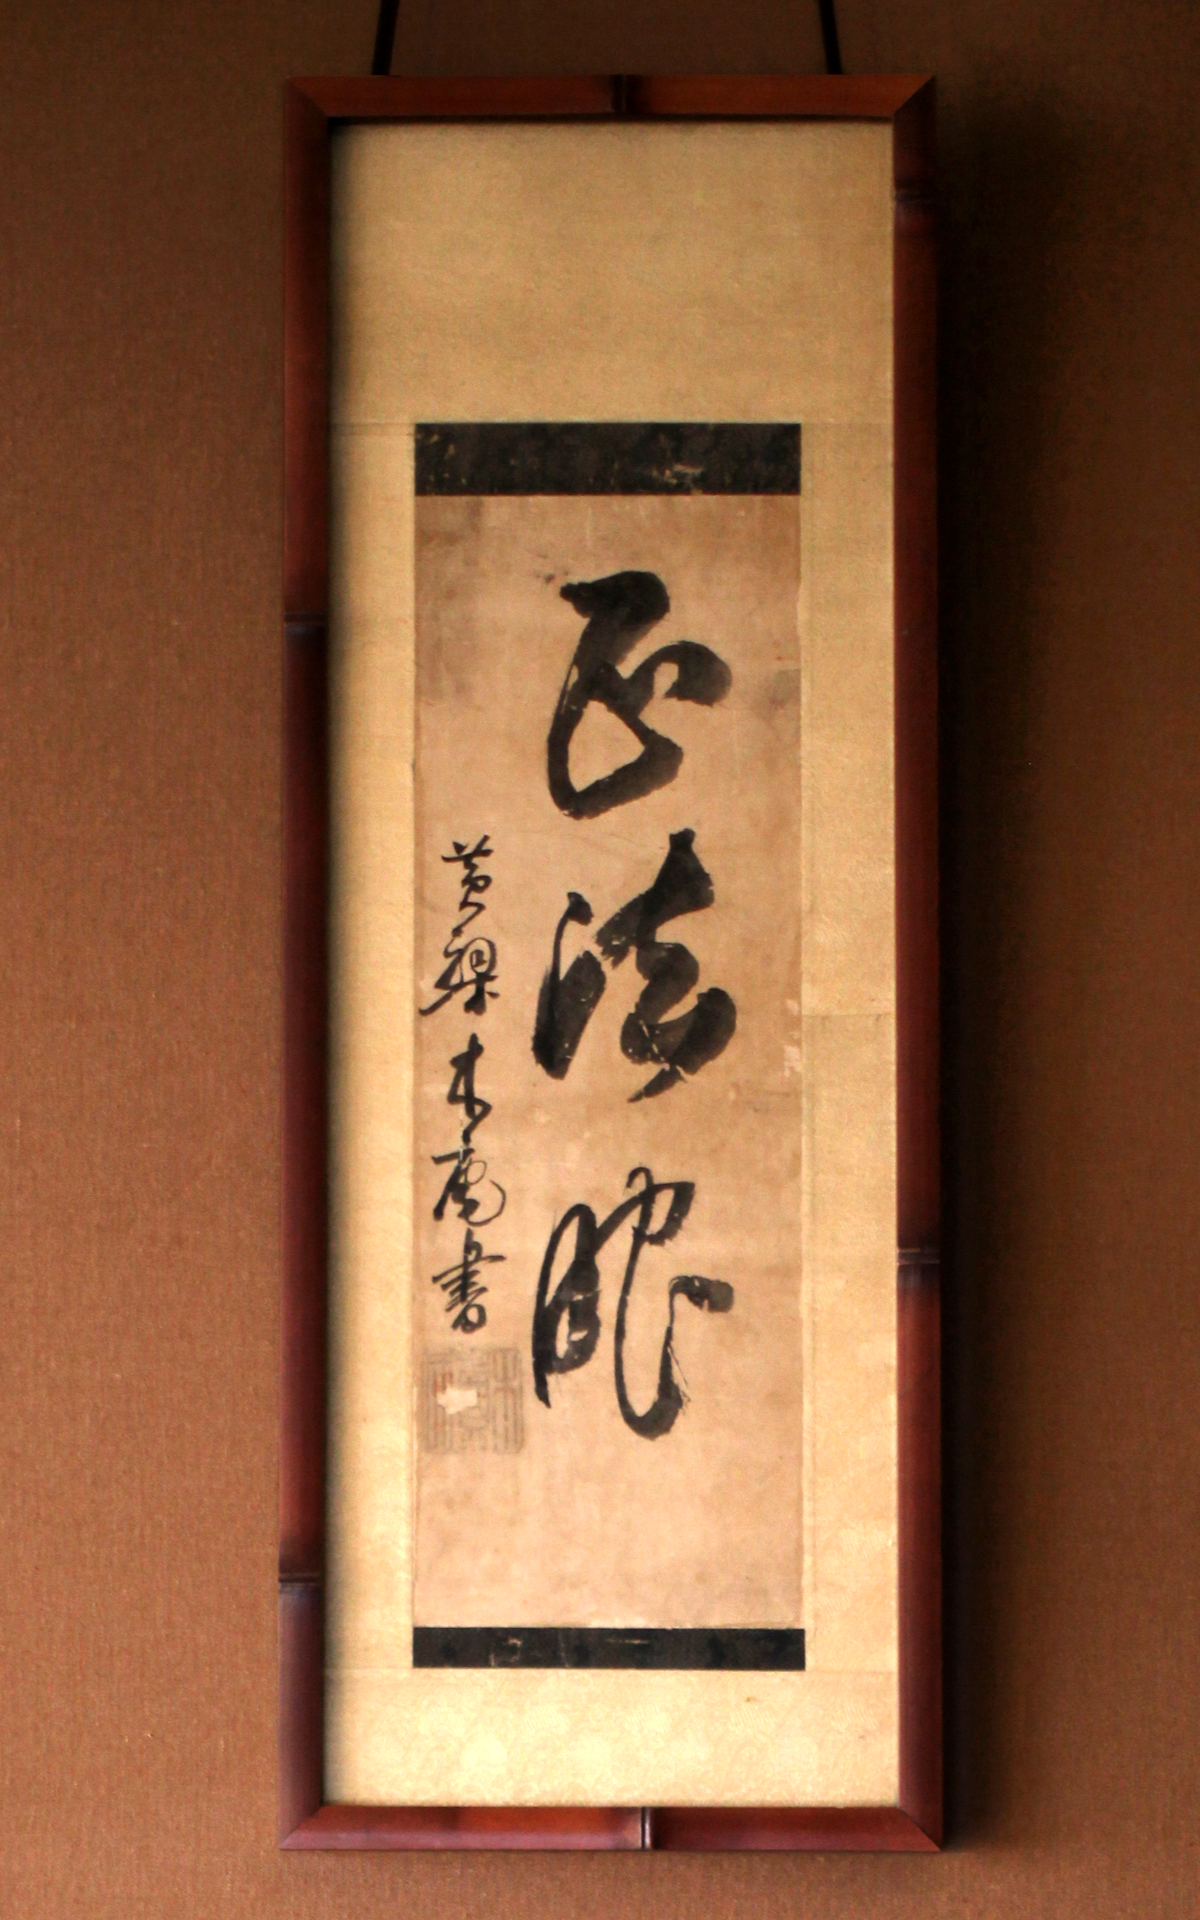 正法眼
黄檗木庵書